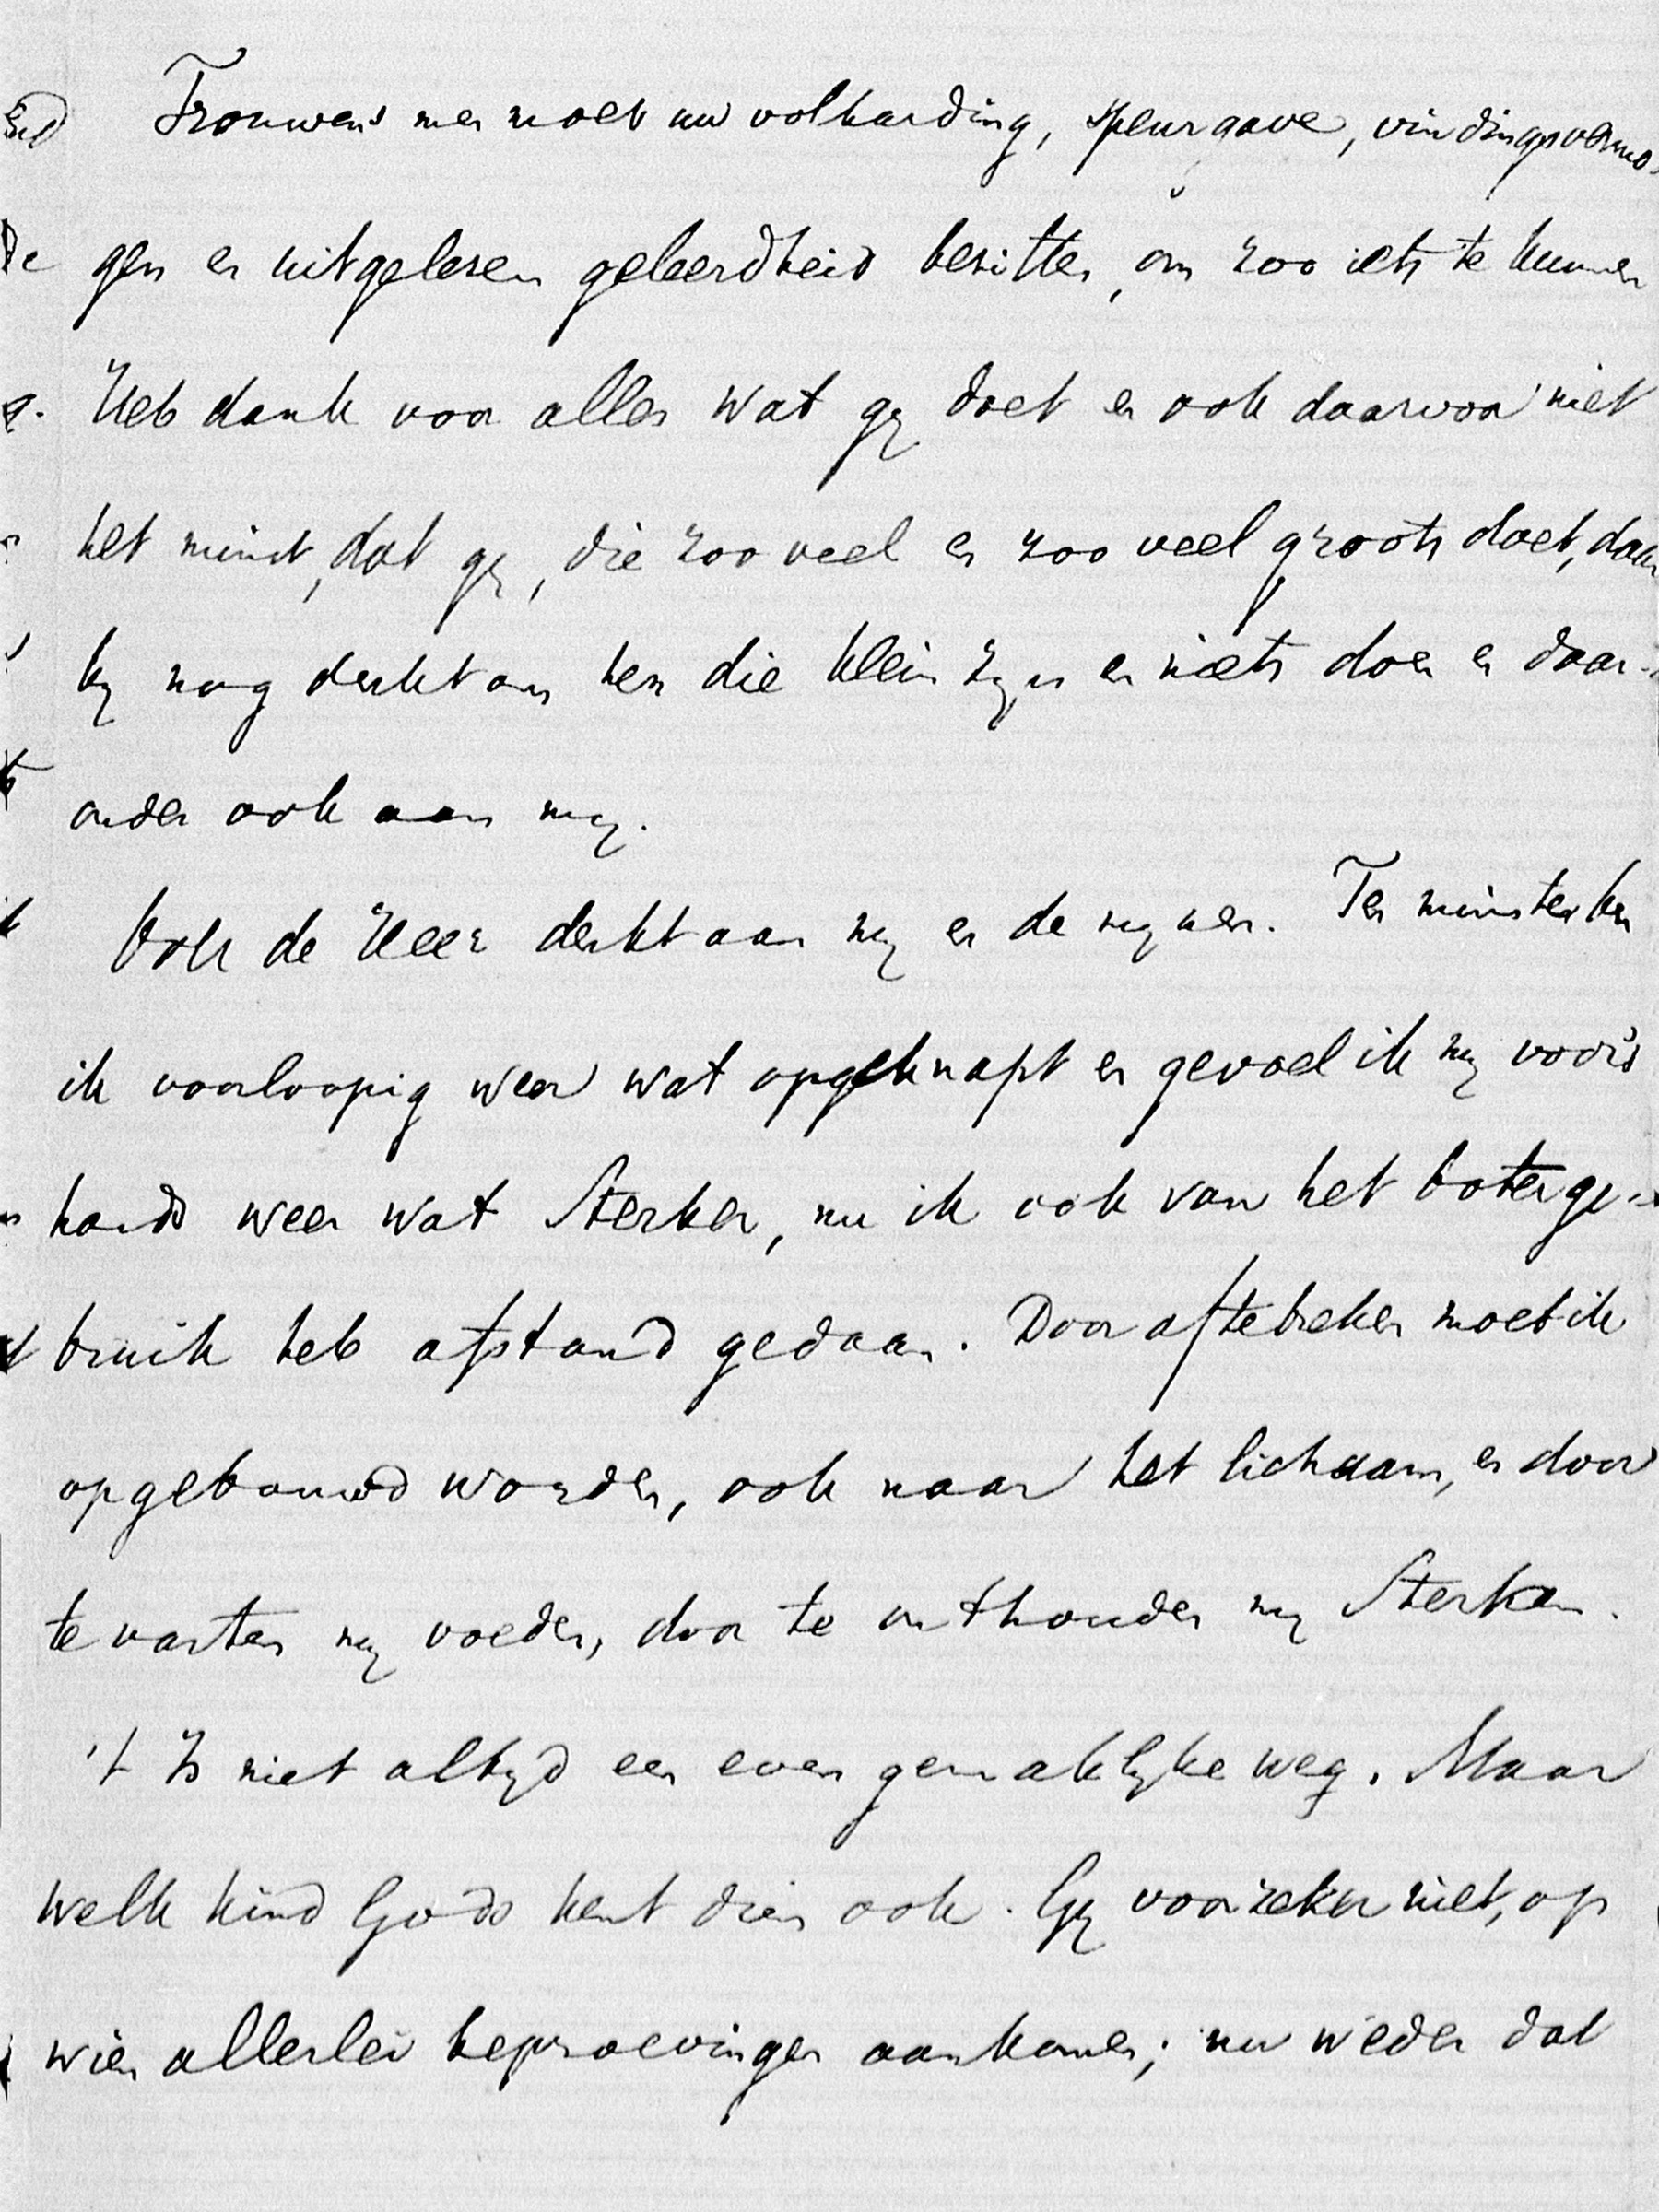 Trouwens men moet uw volharding, speurgave, vindingsvermo-
gen en uitgelezen geleerdheid bezitten, om zoo iets te kunnen
Heb dank voor alles wat gij doet en ook daarvoor niet
het minst, dat gij, die zoo veel en zoo veel groots doet, daar
bij nog denkt om hen die klein zijn en niets doen en daar-
onder ook aan mij.
Ook de Heer denkt aan mij en de mijnen. Ten minste ben
ik voorloopig weer wat opgeknapt en gevoel ik mij voor's
hands weer wat sterker, nu ik ook van het boterge-
bruik heb afstand gedaan. Door aftebreken moet ik
opgebouwd worden, ook naar het lichaam, en door
te vasten mij voeden, door te onthouden mij sterken.
't Is niet altijd een even gemaklijke weg. Maar
welk kind Gods kent dien ook. Gij voorzeker niet, op
wien allerlei beproevingen aankomen; nu weder dat